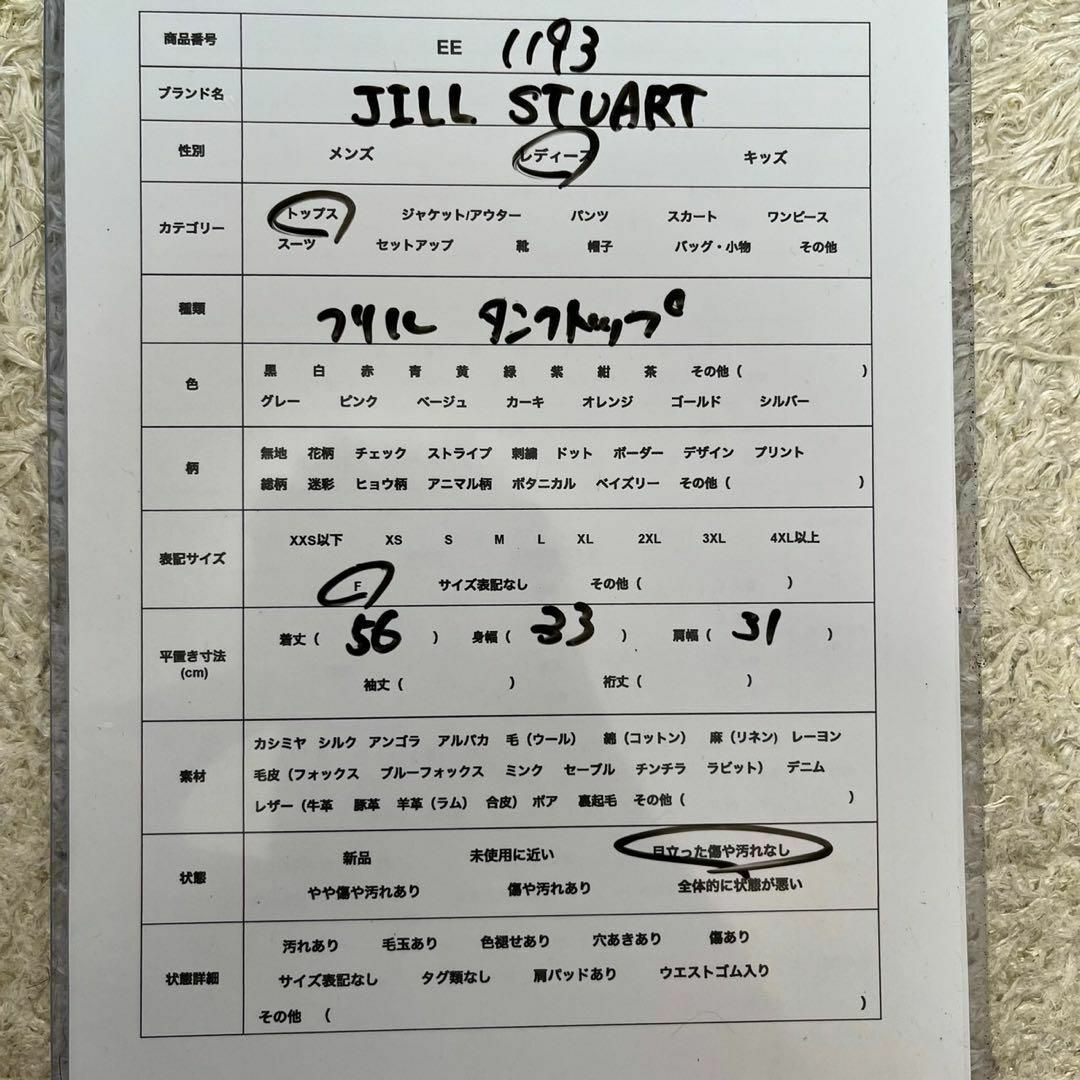 商品番号 EE 1193
ブランド名 JILL STUART
性別 メンズ レディース キッズ
カテゴリー トップス ジャケット/アウター パンツ スカート ワンピース
スーツ セットアップ 靴 帽子 バッグ・小物 その他
種類 フリル タンクトップ
色 黒 白 赤 青 黄 緑 紫 紺 茶 その他 ( )
グレー ピンク ベージュ カーキ オレンジ ゴールド シルバー
柄 無地 花柄 チェック ストライプ 刺繍 ドット ボーダー デザイン プリント
総柄 迷彩 ヒョウ柄 アニマル柄 ボタニカル ペイズリー その他 ( )
表記サイズ XXS以下 XS S M L XL 2XL 3XL 4XL以上
F サイズ表記なし その他 ( )
平置き寸法 (cm) 着丈 ( 56 ) 身幅 ( 33 ) 肩幅 ( 31 )
袖丈 ( ) 裄丈 ( )
素材 カシミヤ シルク アンゴラ アルパカ 毛（ウール） 綿（コットン） 麻（リネン） レーヨン
毛皮（フォックス ブルーフォックス ミンク セーブル チンチラ ラビット） デニム
レザー（牛革 豚革 羊革（ラム） 合皮） ボア 裏起毛 その他 ( )
状態 新品 未使用に近い 目立った傷や汚れなし
やや傷や汚れあり 傷や汚れあり 全体的に状態が悪い
状態詳細 汚れあり 毛玉あり 色褪せあり 穴あきあり 傷あり
サイズ表記なし タグ類なし 肩パッドあり ウエストゴム入り
その他 ( )